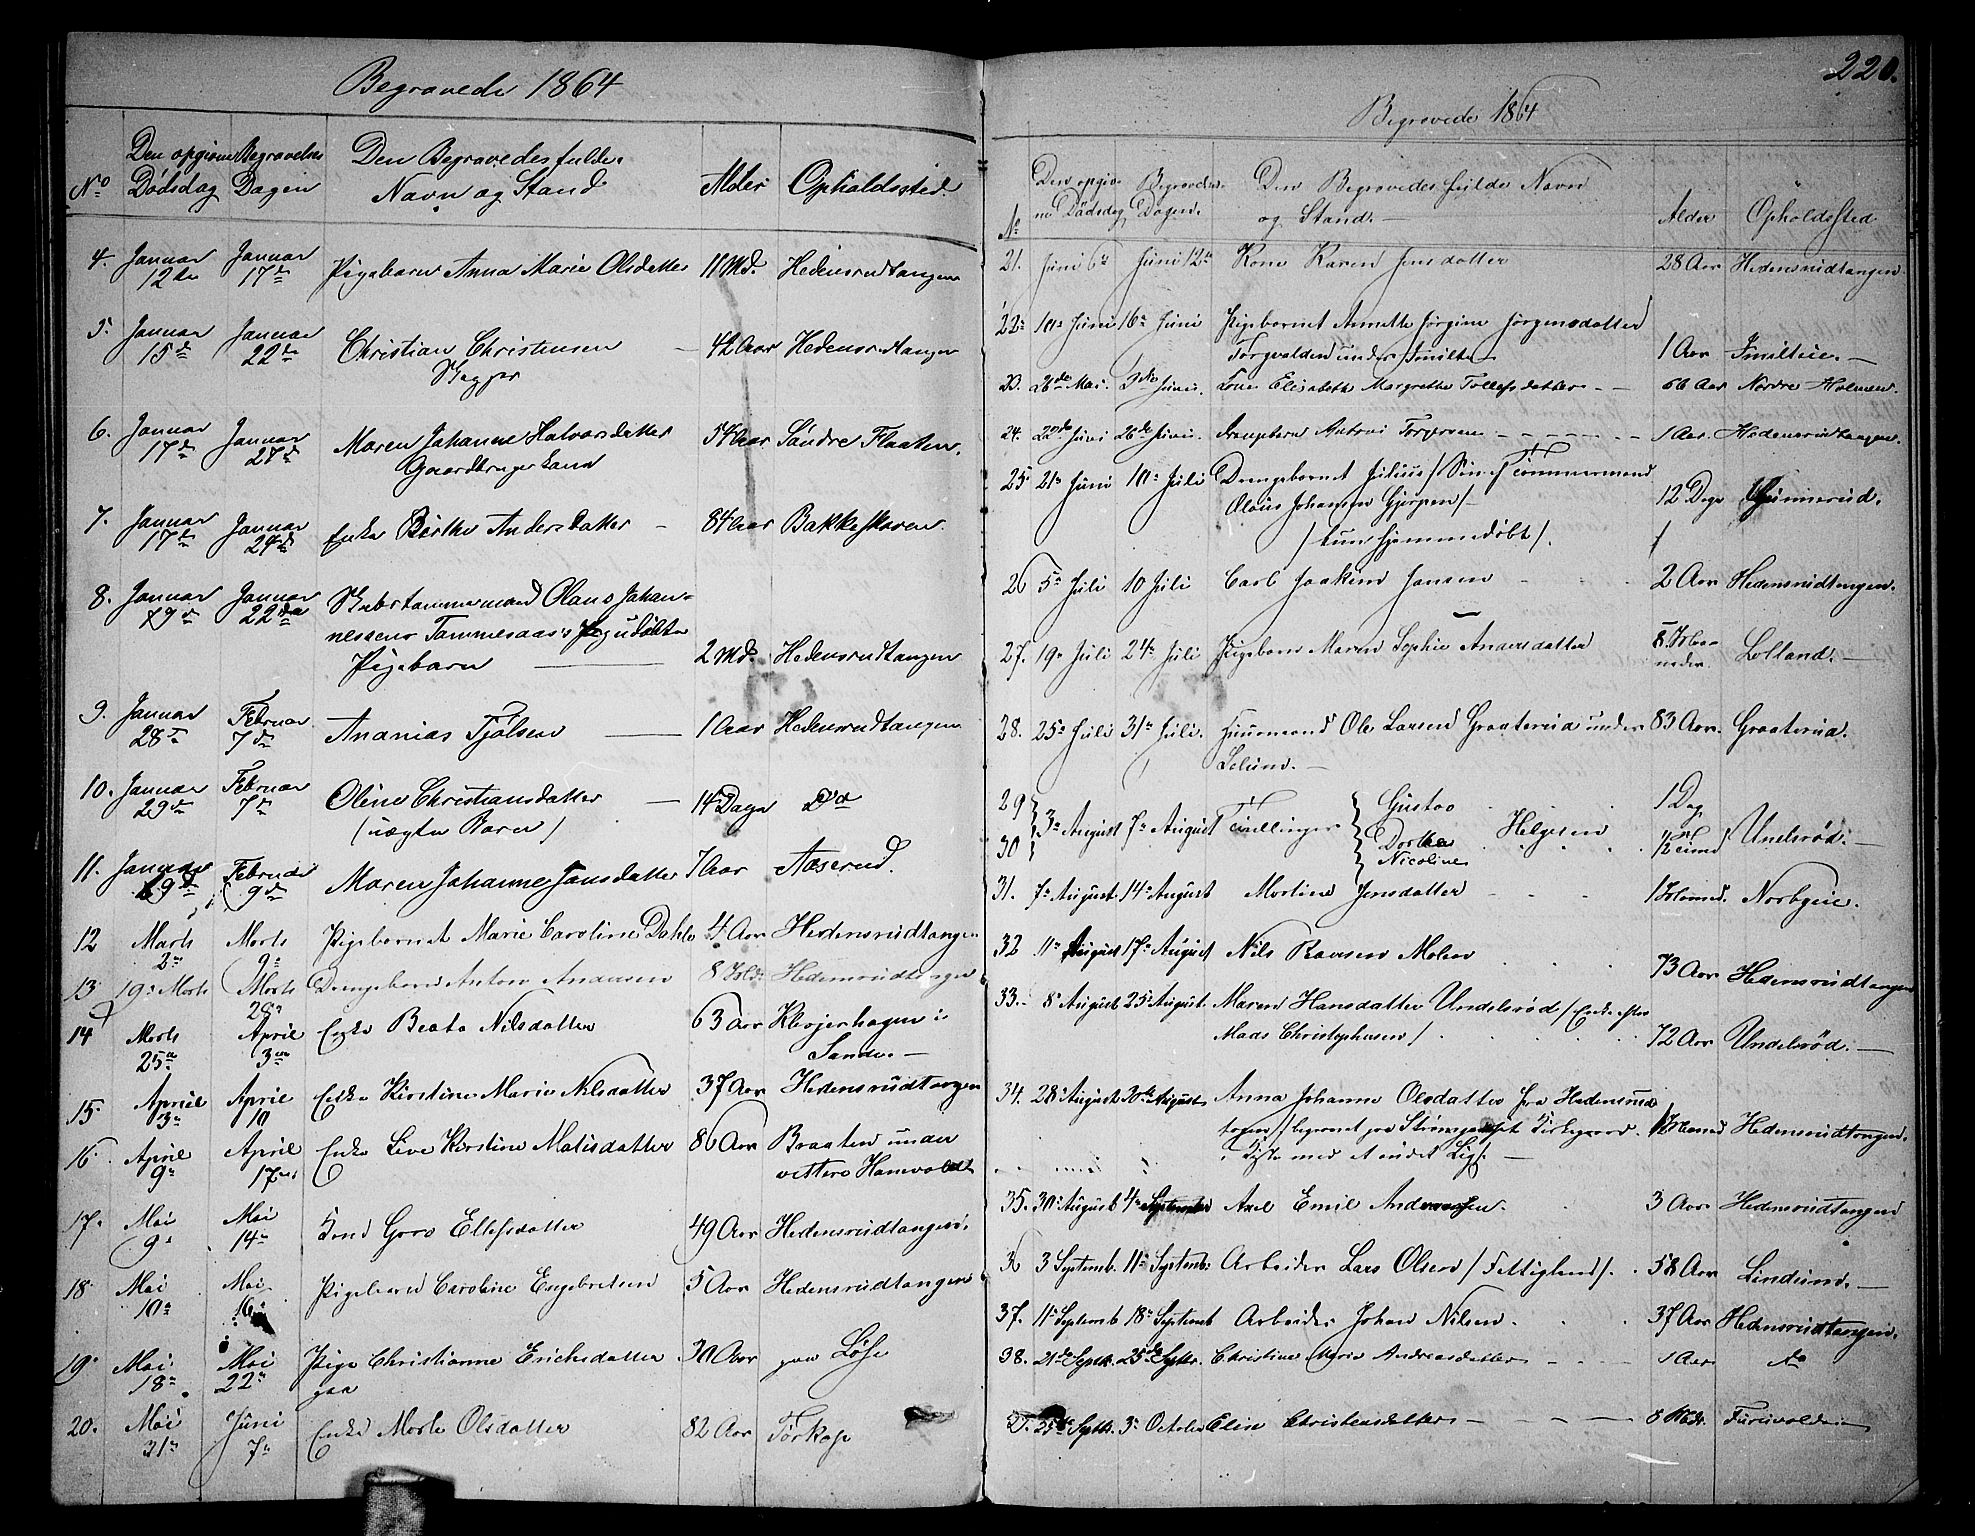 Begravede 1864
No
Den opgivne Dødsdag
Begravelses Dagen
Den Begravedes fulde Navn og Stand
Alder
Opholdssted
4. Januar 12te Januar 17de Pigebarn Anna Marie Olsdatter 11 Md. Hedensrudtangen
5. Januar 15de Januar 22de Christian Christensen 42 Aar Hedensrudtangen
6. Januar 17de Januar 27de Maren Johanne Halvorsdatter 54 Aar Søndre Flaaten.
Gaardbrugerkone
7. Januar 17de Januar 24de Enke Birthe Andersdatter 84 Aar Bakkeskoven.
8. Januar 19de Januar 22de Skibstømmermand Olaus Johan-
nessens Tømmeraas's
Pigebarn 2 Md. Hedensrudtangen
9. Januar 28de Februar 7de Ananias Tjølsen 1 Aar Hedensrudtangen
10. Januar 29de Februar 7de Oline Christiansdatter 14 Dage Do
(uægte Barn)
11. Januar 29de Februar 9de Maren Johanne Jansdatter 7 Aar Aaserud.
12 Marts 2n Marts 9n Pigebarnet Marie Caroline Dahl 4 Aar Hedensrudtangen
13 19n Marts Marts 28n Drengebarn Anton Andersen 8 Md. Hedensrudtangen
14 Marts 25n April 3n Enke Beate Nilsdatter 63 Aar Klevjerhagen i
Sande. —
15. April 3n April 10 Enke Kirstine Marie Nilsdatter 37 Aar Hedensrudtangen
16. April 9n April 17n Enke Live Kirstine Matisdatter 86 Aar Braaten under
vestre Hanevold
17. Mai 9n Mai 14n Kone Goro Ellefsdatter 49 Aar Hedensrudtangen.
18 Mai 10n Mai 16n Pigebarn Caroline Engebretsen 5 Aar Hedensrudtangen
19. Mai 18n Mai 22n Pige Christianne Erichsdatter 30 Aar paa Løse
paa
20. Mai 31n Juni 7n Enke Marte Olsdatter 82 Aar Torkop
220.
Begravede 1864
No
Den opgivne Dødsdag
Begravelses Dagen.
Den Begravedes fulde Navn
og Stand. —
Alder
Opholdssted
21. Juni 6n Juni 12n Kone Karen Jensdatter 28 Aar Hedensrudtangen.
22n 10n Juni 16n Juni Pigebarnet Annette Jørgine Jørgensdatter
Torgvalden under Smilte 1 Aar Smilteie. —
23. 28de Mai. 3die Juni. Kone Elisabeth Margrethe Tollefsdatter 66 Aar Nordre Holmen.
24. 22de Juni 26de Juni. Drengebarn Antoni Torgersen 1 Aar Hedensrudtangen.
25 21n Juni 10n Juli Drengebarnet Julius / Søn af Tømmermand
Olaus Johansen Gjerpen / 12 Dage Gunnerud.
/ kun hjemmedøbt /.
26 5n Juli 10 Juli Carl Joakim Jansen 2 Aar Hedensrudtangen.
27. 19n Juli 24n Juli Pigebarn Maren Sophie Andersdatter 8 Maa-
neder. Lolland. —
28. 25n Juli 31n Juli. Huusmand Ole Larsen Graaterud under 83 Aar. Graaterud.
Selund. —
29 30 3n August 7n August Tvillinger Gustav Dorthea Nicoline Helgesen 1 Dag 1/2 time Undelsrød. —
31. 7n August 14n August Martine Jensdatter 1 Maaned. Norbyeie.
32 11n August 17n August Nils Raversen Moløv 73 Aar Hedensrudtangen
33. 8n August 25n August Maren Hansdatter Undelsrød / Enke efter
Mads Christophersen / 72 Aar Undelsrød. —
34. 28 August 30te August Anna Johanne Olsdatter fra Hedensrud-
tangen / begravet paa Strømsgodset Kirkegaard 1 Maaned Hedensrudtangen.
i Kiste med et andet Lig /. —
35. 30n August 4n September Axel Emil Andreassen. 3 Aar Hedensrudtangen
36 3 Septemb. 11n Septemb: Arbeider Lars Olsen / Fattiglem /. 58 Aar Lindum. —
37. 11n Septemb 18n Septemb Arbeider Johan Nilsen. 37 Aar Hedensrudtangen.
38. 21de Septb. 25de Septbr. Christine Marie Andreasdatter 1 Aar do
25de Septbr. 3n October Elise Christensdatter 8 Mdr. Furuvolden